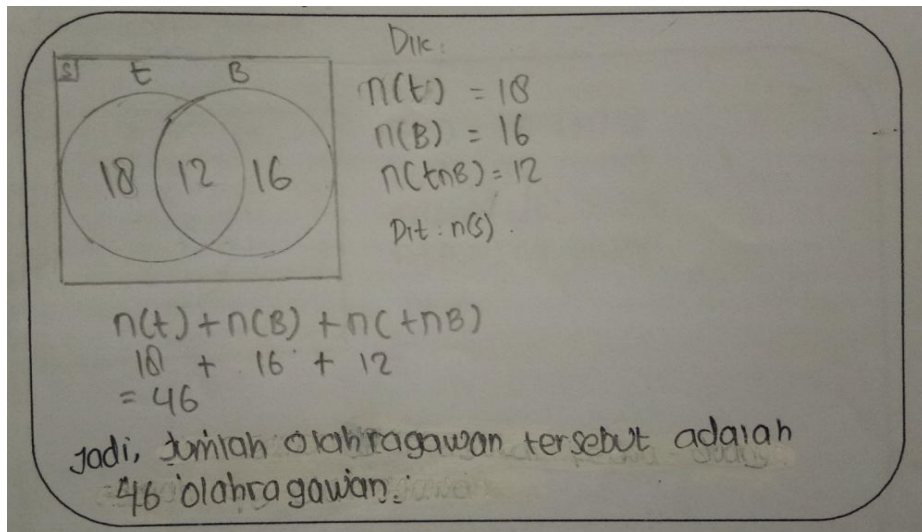 S t B
18 12 16
Dik:
n(t) = 18
n(B) = 16
n(t∩B) = 12
Dit: n(s).
n(t) + n(B) + n(t∩B)
18 + 16 + 12
= 46
Jadi, Jumlah olahragawan tersebut adalah
46 olahragawan.